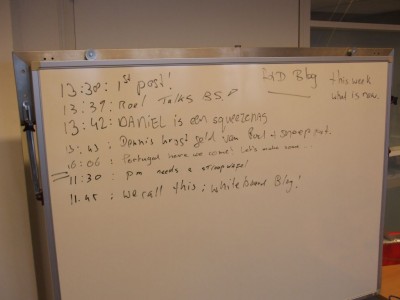 13:38: 1st post!
13:39: Roel Talks BS.
13:42: DANIEL is een squeezenas
13:43: Dennis krijgt geld van Roel +
16:06: Portugal here we come! Let's make some...
11:30: pm needs a
11.45: we call this: whiteboard Blog!
RXD Blog
this week
what is new.